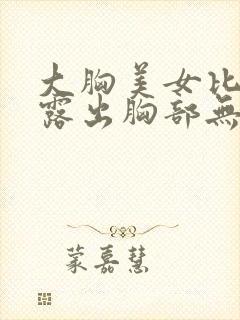 大胸美女比
露出胸部無
蒙嘉慧